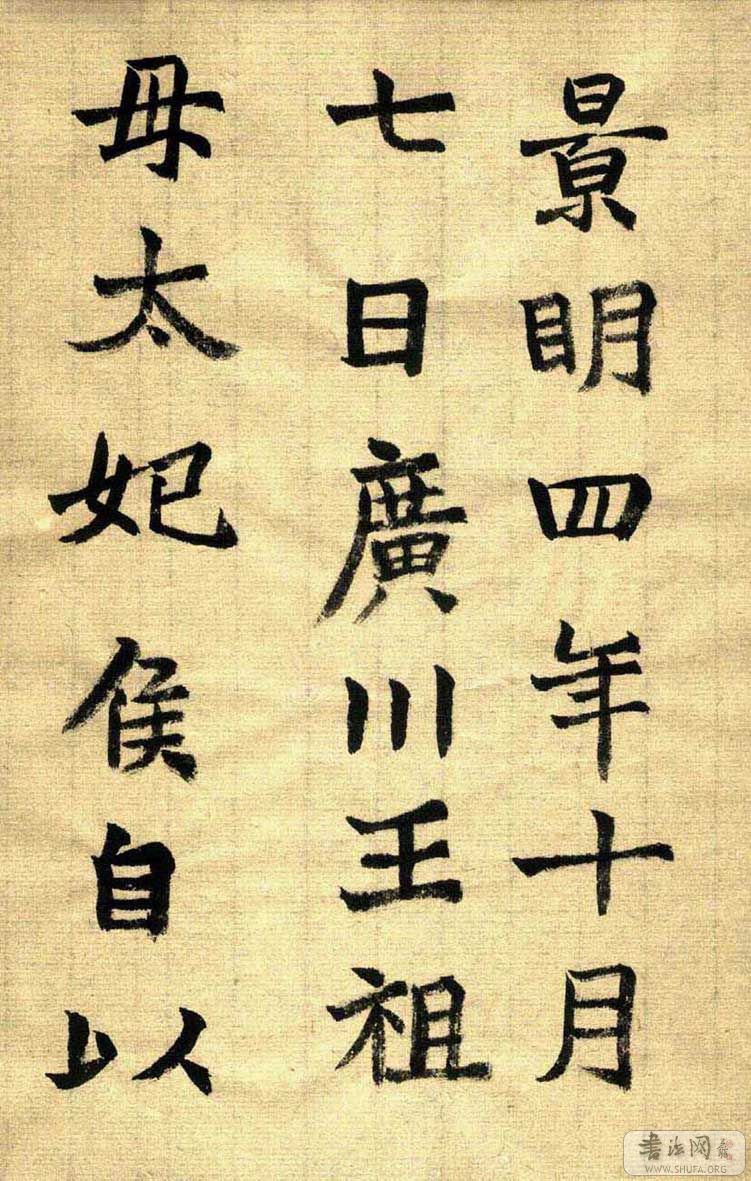 景明四年十月
七日廣川王祖
母太妃侯自以
书法网
WWW.SHUFA.ORG